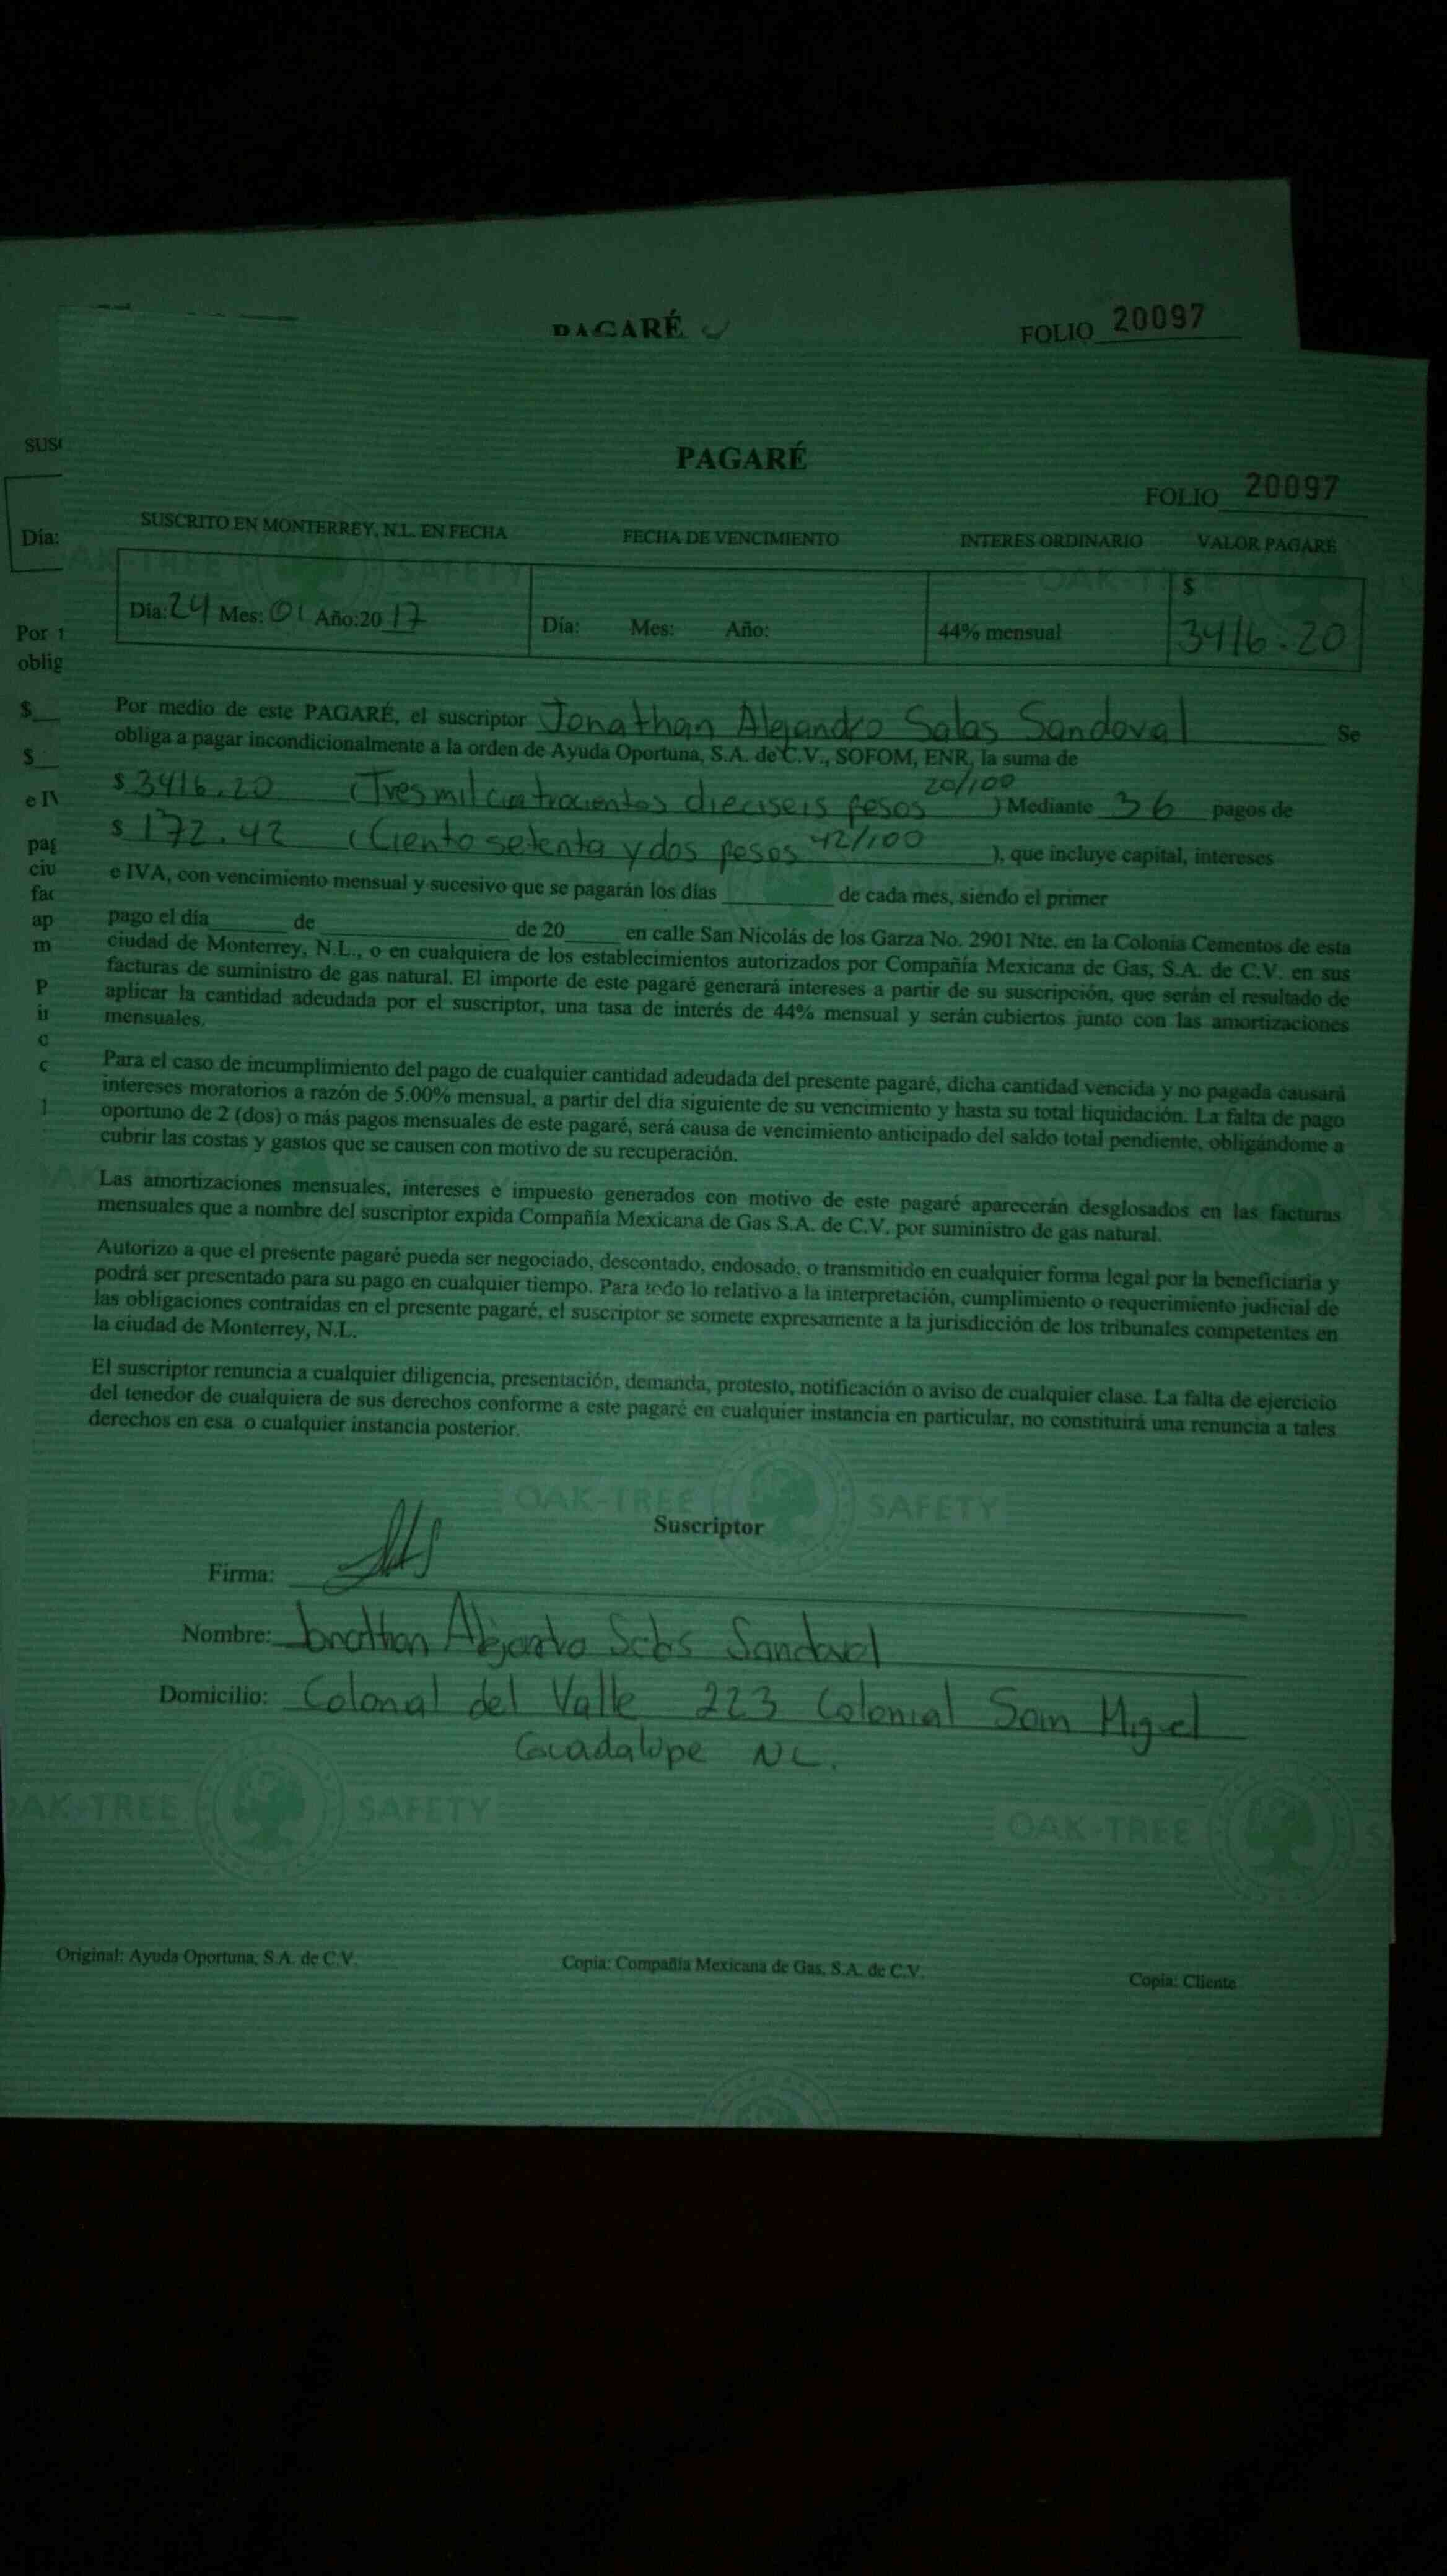 PAGARÉ
FOLIO 20097
SUS
Día:
Por
oblig
$
$
e IV
pag
ciu
fac
ap
m
P
PAGARÉ
FOLIO 20097
SUSCRITO EN MONTERREY, N.L. EN FECHA FECHA DE VENCIMIENTO INTERES ORDINARIO VALOR PAGARÉ
OAK-TREE SAFETY OAK-TREE
Día: 24 Mes: 01 Año:20 17 Día: Mes: Año: 44% mensual $ 3416.20
Por medio de este PAGARÉ, el suscriptor Jonathan Alejandro Salas Sandoval Se
obliga a pagar incondicionalmente a la orden de Ayuda Oportuna, S.A. de C.V., SOFOM, ENR, la suma de
$ 3416.20 (Tres mil cuatrocientos dieciseis pesos 20/100 ) Mediante 36 pagos de
$ 172.42 (Ciento setenta y dos pesos 42/100 ), que incluye capital, intereses
e IVA, con vencimiento mensual y sucesivo que se pagarán los días de cada mes, siendo el primer
pago el día de de 20 en calle San Nicolás de los Garza No. 2901 Nte. en la Colonia Cementos de esta
ciudad de Monterrey, N.L., o en cualquiera de los establecimientos autorizados por Compañía Mexicana de Gas, S.A. de C.V. en sus
facturas de suministro de gas natural. El importe de este pagaré generará intereses a partir de su suscripción, que serán el resultado de
aplicar la cantidad adeudada por el suscriptor, una tasa de interés de 44% mensual y serán cubiertos junto con las amortizaciones
mensuales.
Para el caso de incumplimiento del pago de cualquier cantidad adeudada del presente pagaré, dicha cantidad vencida y no pagada causará
intereses moratorios a razón de 5.00% mensual, a partir del día siguiente de su vencimiento y hasta su total liquidación. La falta de pago
oportuno de 2 (dos) o más pagos mensuales de este pagaré, será causa de vencimiento anticipado del saldo total pendiente, obligándome a
cubrir las costas y gastos que se causen con motivo de su recuperación.
Las amortizaciones mensuales, intereses e impuesto generados con motivo de este pagaré aparecerán desglosados en las facturas
mensuales que a nombre del suscriptor expida Compañía Mexicana de Gas S.A. de C.V. por suministro de gas natural.
Autorizo a que el presente pagaré pueda ser negociado, descontado, endosado, o transmitido en cualquier forma legal por la beneficiaria y
podrá ser presentado para su pago en cualquier tiempo. Para todo lo relativo a la interpretación, cumplimiento o requerimiento judicial de
las obligaciones contraídas en el presente pagaré, el suscriptor se somete expresamente a la jurisdicción de los tribunales competentes en
la ciudad de Monterrey, N.L.
El suscriptor renuncia a cualquier diligencia, presentación, demanda, protesto, notificación o aviso de cualquier clase. La falta de ejercicio
del tenedor de cualquiera de sus derechos conforme a este pagaré en cualquier instancia en particular, no constituirá una renuncia a tales
derechos en esa o cualquier instancia posterior.
OAK-TREE SAFETY
Suscriptor
Firma:
Nombre: Jonathan Alejandro Salas Sandoval
Domicilio: Colonial del Valle 223 Colonial San Miguel
Guadalupe NL.
OAK-TREE SAFETY OAK-TREE
Original: Ayuda Oportuna, S.A. de C.V. Copia: Compañía Mexicana de Gas, S.A. de C.V. Copia: Cliente